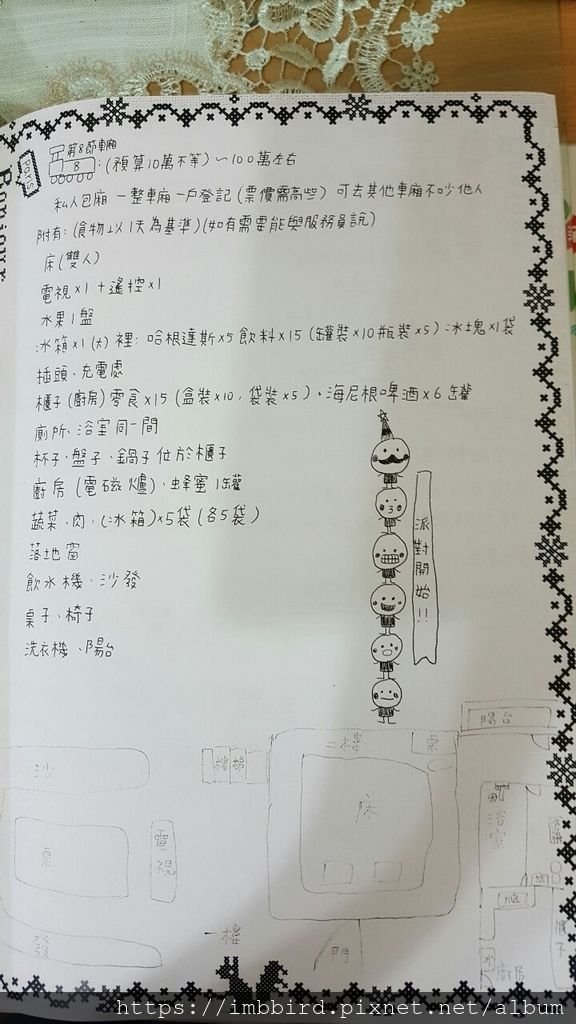 第8節車廂
8 : (預算10萬不等) ~100萬左右
私人包廂 一整車廂一戶登記 (票價需高些) 可去其他車廂不吵他人
附有: (食物以1天為基準) (如有需要能與服務員說)
床(雙人)
電視×1 + 遙控×1
水果1盤
冰箱×1 (大) 裡: 哈根達斯×5 飲料×15 (罐裝×10 瓶裝×5) 冰塊×1袋
插頭、充電處
櫃子 (廚房) 零食×15 (盒裝×10, 袋裝×5)。海尼根啤酒×6罐
廁所、浴室同一間
杯子、盤子、鍋子位於櫃子
廚房 (電磁爐)、蜂蜜1罐
蔬菜、肉、(冰箱)×5袋 (各5袋)
落地窗
飲水機、沙發
桌子、椅子
洗衣機、陽台
派對開始!!
陽台
二樓
桌
樓梯
沙
床
浴室
電視
桌
櫃子
發
一樓
門
廚房
https://imbbird.pixnet.net/album